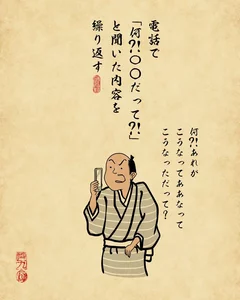 電話で
「何?!〇〇だって?!」
と聞いた内容を
繰り返す
何?!あれが
こうなってああなって
こうなっただって?